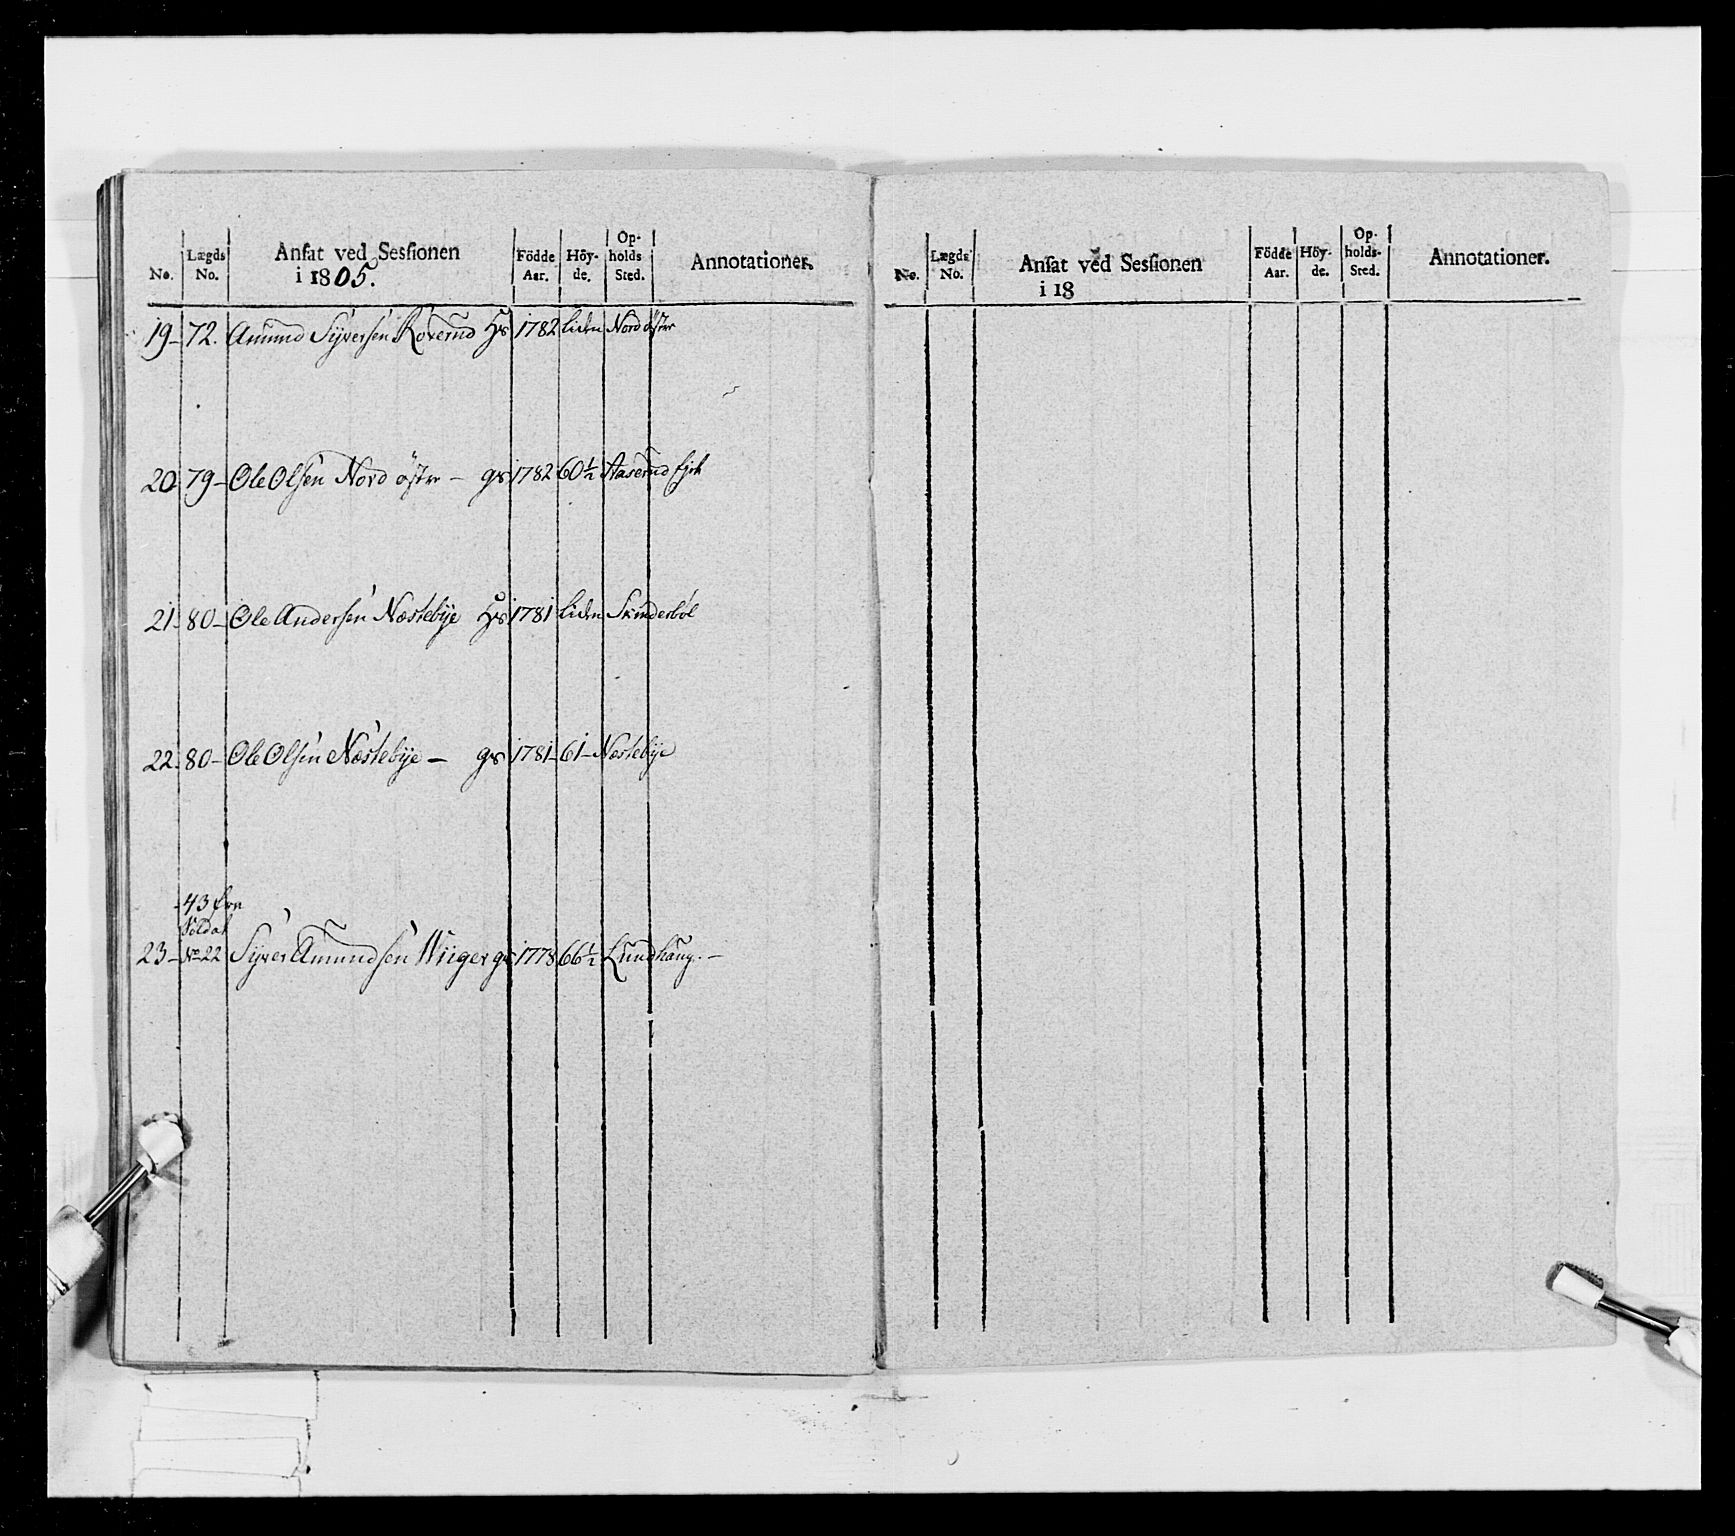 No. Lægds No. Ansat ved Sessionen i 1805. Födde Aar. Höy-de. Op-holds Sted. Annotationer.
19 - 72. Amund Syversen Roverud Hs 1782 Liden Nord østre
20. 79 - Ole Olsen Nord østre - gs 1782 60½ Aaserud
21. 80 - Ole Andersen Næstebye Hs 1781 Liden Skinderböl
22. 80 - Ole Olsen Næstebye - gs 1781 - 61 - Næstebye
- 43
Soldat
23 - No 22 Syver Amundsen Wiiger gs 1778 66½ Lundhaug. -
No. Lægds No. Ansat ved Sessionen i 18 Födde Aar. Höy-de. Op-holds-Sted. Annotationer.